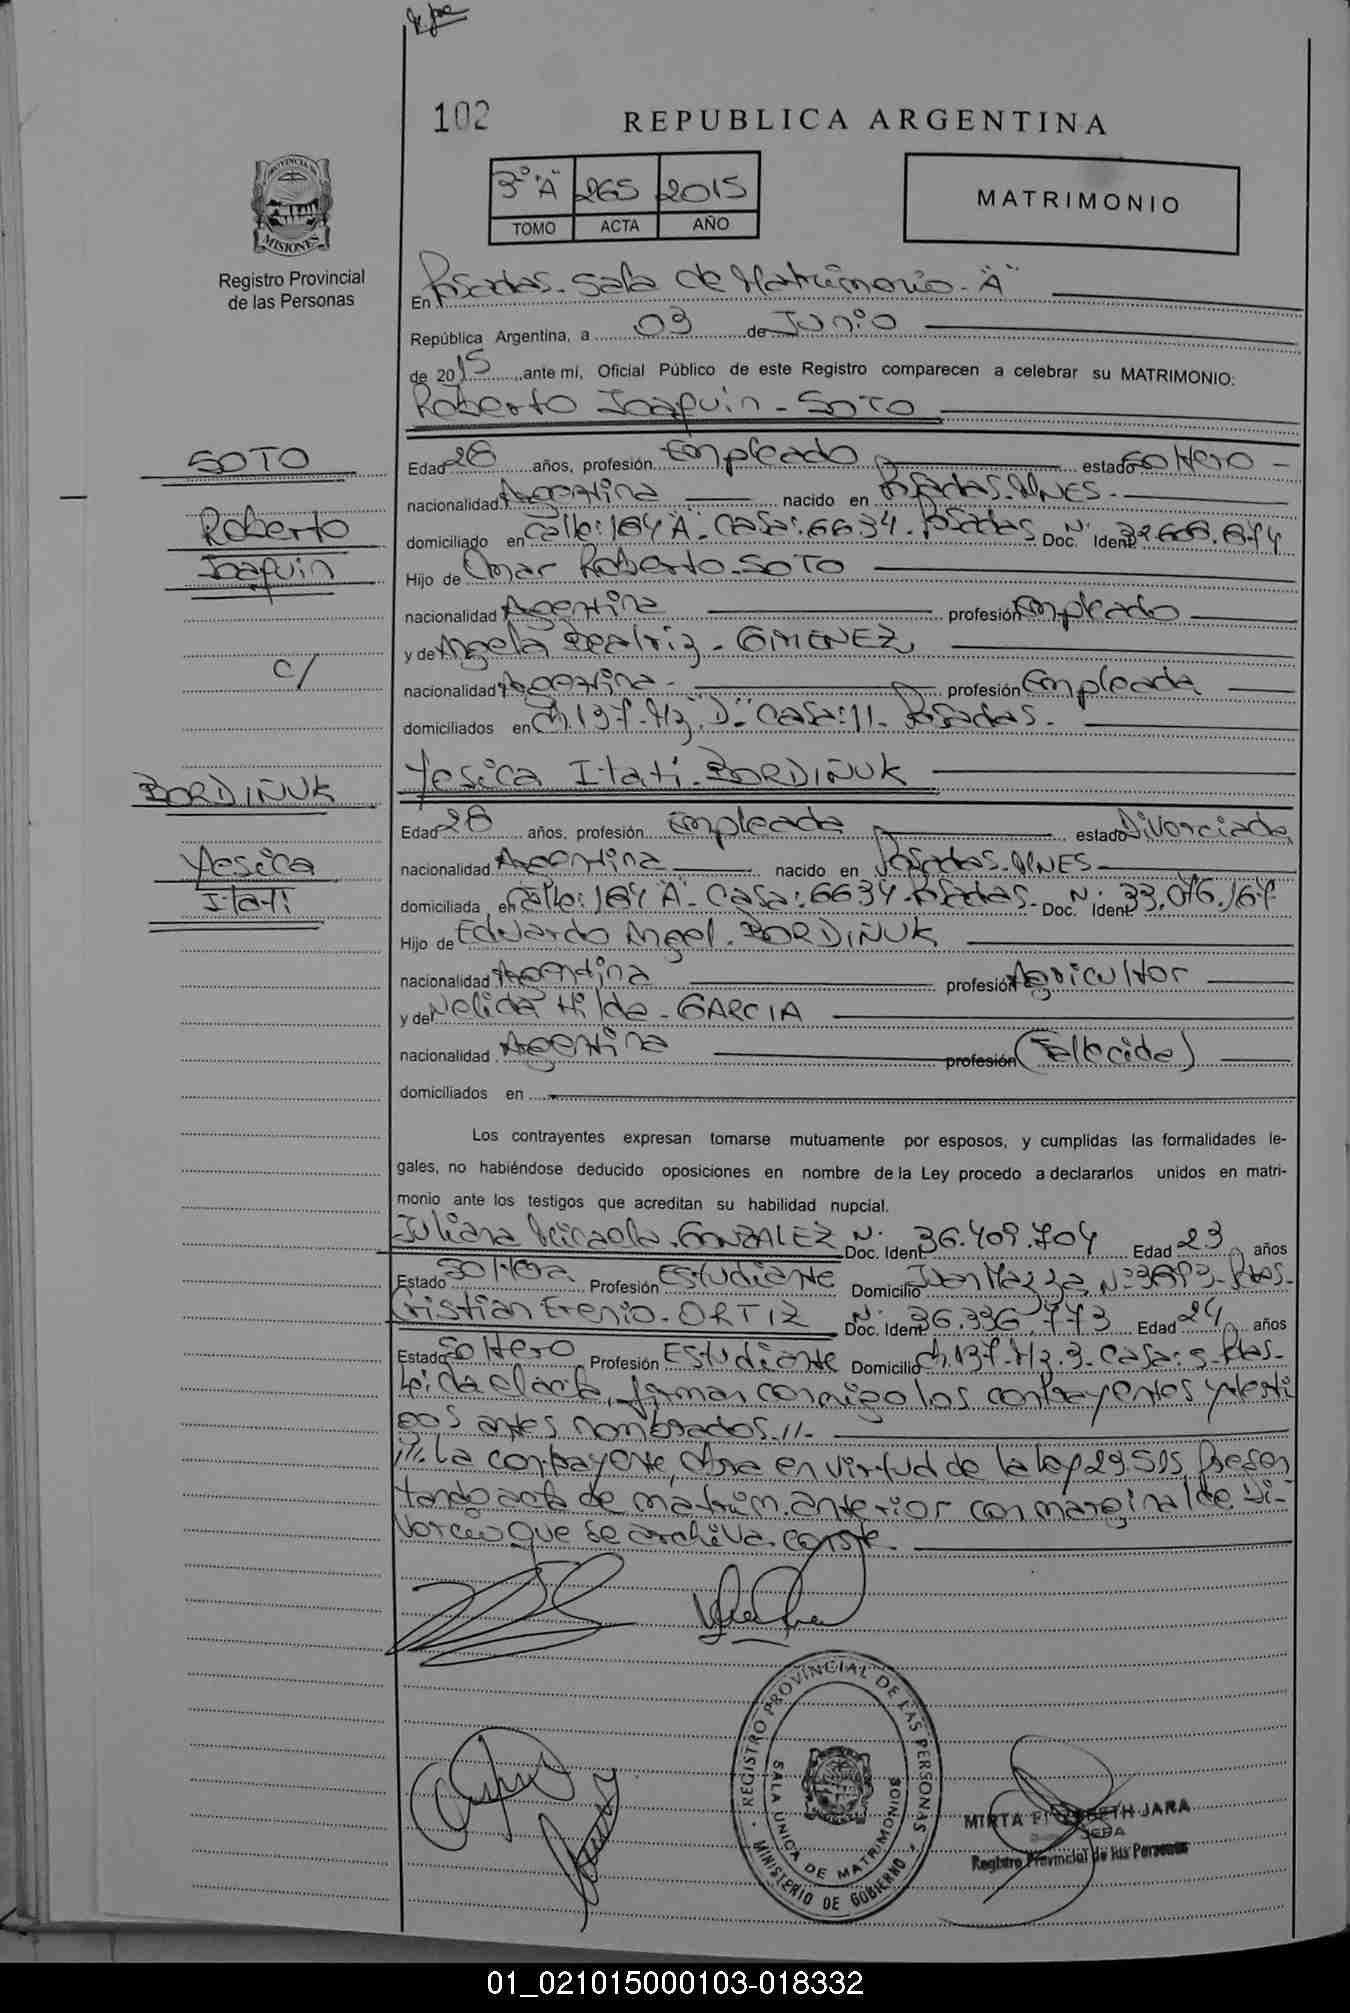 102
REPUBLICA ARGENTINA
PROVINCIA DE
MISIONES
Registro Provincial
de las Personas
3º "A" 265 2015
TOMO ACTA AÑO
MATRIMONIO
En Posadas. Sala de Matrimonio. "A"
República Argentina, a 03 de Junio
de 2015 ante mí, Oficial Público de este Registro comparecen a celebrar su MATRIMONIO:
Roberto Joaquin - SOTO
SOTO
Roberto
Joaquin
c/
BORDIÑUK
Yesica
Itati
Edad 28 años, profesión Empleado estado Soltero -
nacionalidad Argentina nacido en Posadas. MNES.
domiciliado en Calle: 164 A. Casa: 6634. Posadas Doc. Nº Ident.
Hijo de Omar Roberto. SOTO
nacionalidad Argentina profesión Empleado
y de Angela Beatriz - GIMENEZ
nacionalidad Argentina - profesión Empleada
domiciliados en Ch. 137. Mz. "D" Casa: 11. Posadas.
Yesica Itati. BORDIÑUK
Edad 28 años, profesión Empleada estado Divorciada
nacionalidad Argentina nacido en Posadas. MNES
domiciliada en Calle: 164 A. Casa: 6634. Posadas. Doc. Nº Ident. 33.076.167
Hijo de Eduardo Angel. BORDIÑUK
nacionalidad Argentina profesión Agricultor
y de Nelida Hilda - GARCIA
nacionalidad Argentina profesión (Fallecida)
domiciliados en
Los contrayentes expresan tomarse mutuamente por esposos, y cumplidas las formalidades le-
gales, no habiéndose deducido oposiciones en nombre de la Ley procedo a declararlos unidos en matri-
monio ante los testigos que acreditan su habilidad nupcial.
Juliana Micaela. GONZALEZ Doc. Nº Ident. 36.409.704 Edad 23 años
Estado Soltera Profesión Estudiante Domicilio Nº Pdas.
Cristian Erenio. ORTIZ Doc. Nº Ident. 36.336.773 Edad 24 años
Estado Soltero Profesión Estudiante Domicilio Ch. 137. Mz. 3. Casa: 9. Pdas.
Leida el acta, firman conmigo los contrayentes y testi
gos antes nombrados.//-
///. La contrayente, obra en virtud de la ley 23515, presen
tando acta de matrim. anterior con marginal de Di-
vorcio que se archiva. conste.
REGISTRO PROVINCIAL DE LAS PERSONAS
SALA UNICA DE MATRIMONIOS
MINISTERIO DE GOBIERNO
MIRTA ELIZABETH JARA
Registro Provincial de las Personas
01_021015000103-018332